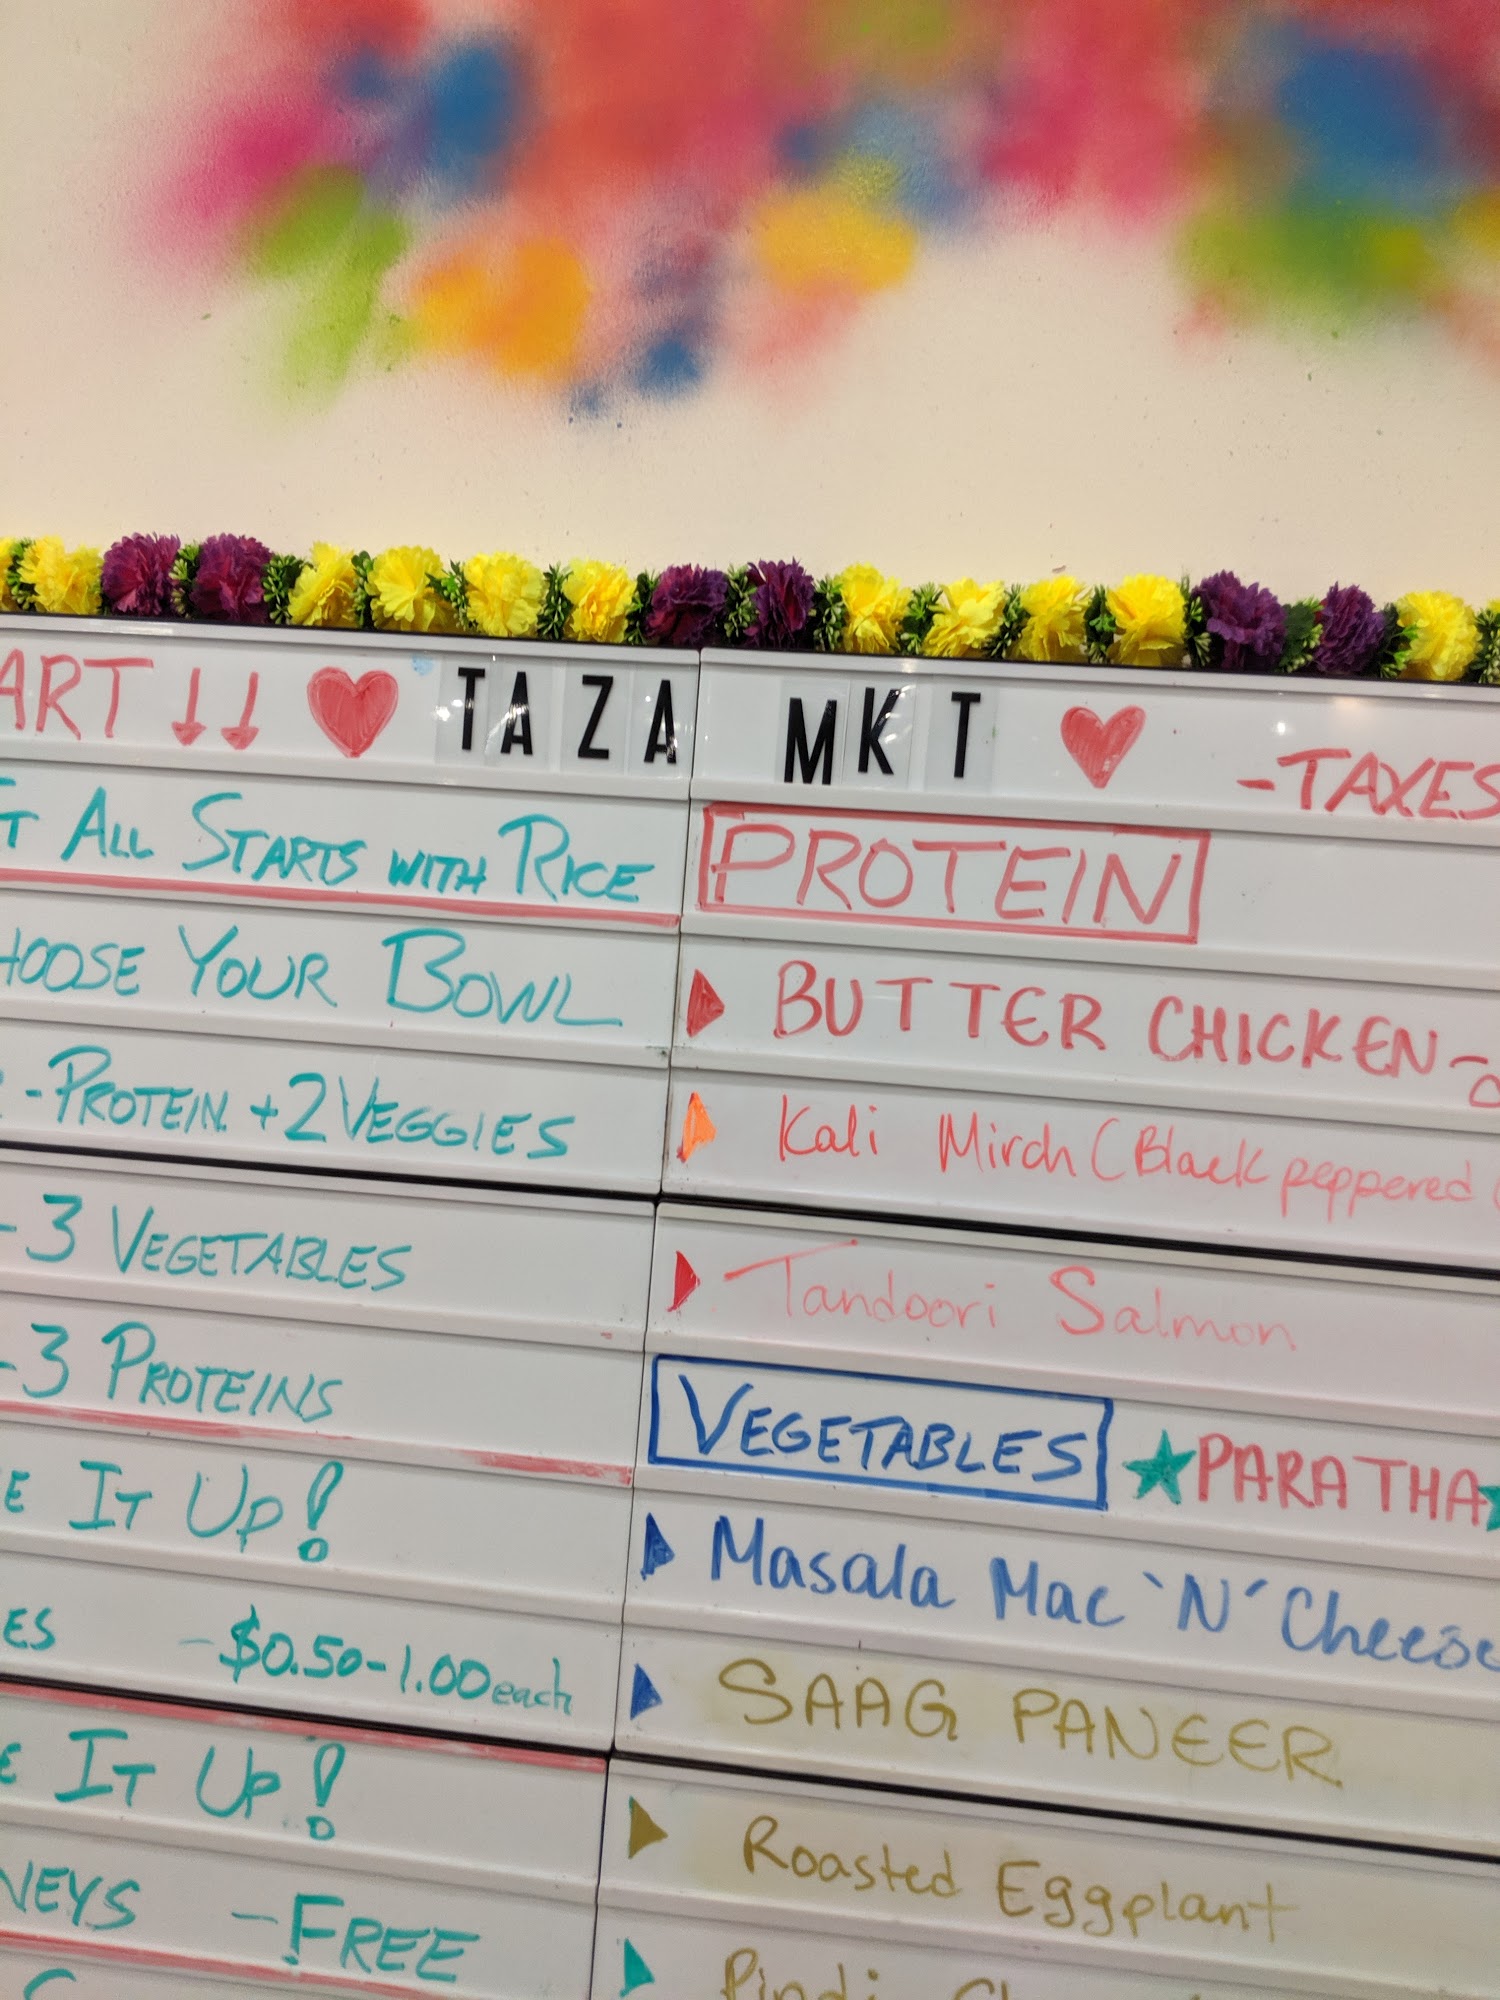 ART ↓↓ ♥ TAZA MKT ♥ -TAXES
ALL STARTS WITH RICE
CHOOSE YOUR BOWL
-PROTEIN +2 VEGGIES
-3 VEGETABLES
-3 PROTEINS
IT UP!
-$0.50-1.00 each
IT UP!
-FREE
PROTEIN
BUTTER CHICKEN-
Kali Mirch (Black peppered
Tandoori Salmon
VEGETABLES ★PARATHA★
Masala Mac 'N' Cheese
SAAG PANEER
Roasted Eggplant
Pindi